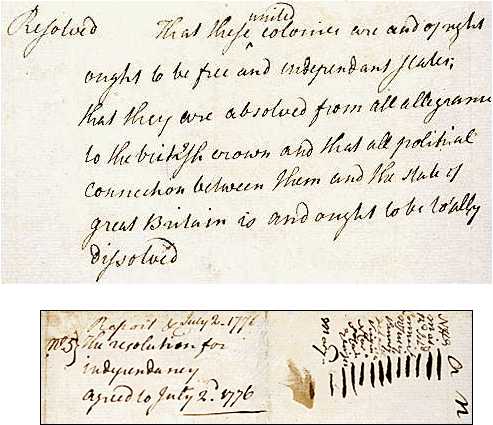 united
Resolved That these ^ colonies are and of right
ought to be free and independant states;
that they are absolved from all allegiance
to the british crown and that all political
connection between them and the state of
great Britain is and ought to be totally
dissolved
Report & July 2. 1776
No 5) the resolution for
independancy
agreed to July 2d. 1776